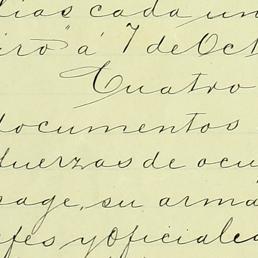 lias cada un
iro" á 7 de Oct
Cuatro
documentos
fuerzas de ocu
sage, su arma
efes y Oficiales